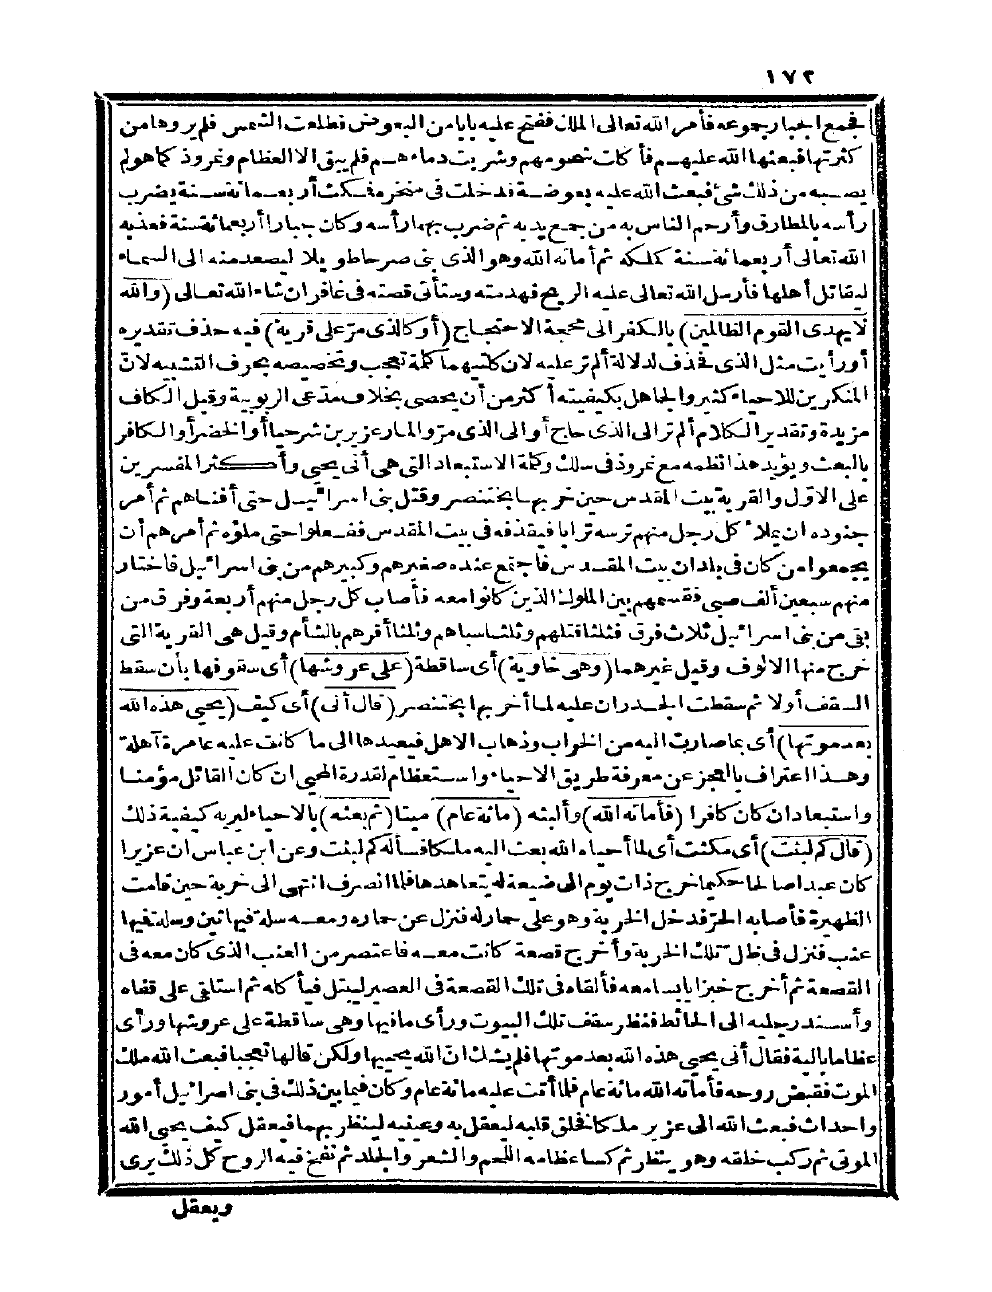 ١٧٢
فجمع الجبار جموعه فأمر الله تعالى الملك ففتح عليه بابا من البعوض فطلعت الشمس فلم يروها من
كثرتها فبعثها الله عليهم فأكلت شحومهم وشربت دماءهم فلم يبق الا العظام ونمروذ كما هو لم
يصبه من ذلك شئ فبعث الله عليه بعوضة فدخلت فى منخره فمكث أربعمائة سنة يضرب
رأسه بالمطارق وأرحم الناس به من جمع يديه ثم ضرب بهما رأسه وكان جبارا أربعمائة سنة فعذبه
الله تعالى أربعمائة سنة كملكه ثم أماته الله وهو الذى بنى صرحا طويلا ليصعد منه الى السماء
ليقاتل أهلها فأرسل الله تعالى عليه الريح فهدمته وستأتى قصته فى غافر ان شاء الله تعالى (والله
لا يهدى القوم الظالمين) بالكفر الى محجة الاحتجاج (أو كالذى مرّ على قرية) فيه حذف تقديره
أو رأيت مثل الذى فحذف لدلالة ألم تر عليه لان كلتيهما كلمة تعجب وتخصيصه بحرف التشبيه لانّ
المنكرين للاحياء كثير والجاهل بكيفيته أكثر من أن يحصى بخلاف مدّعى الربوبية وقيل الكاف
مزيدة وتقدير الكلام ألم تر الى الذى حاج أو الى الذى مرّ والمار عزير بن شرحيا أو الخضر أو الكافر
بالبعث ويؤيد هذا نظمه مع نمروذ فى سلك وكلمة الاستبعاد التى هى أنى يحيى وأكثر المفسرين
على الاوّل والقرية بيت المقدس حين خربها بختنصر وقتل بنى اسرائيل حتى أفناهم ثم أمر
جنوده ان يملا ٔ كل رجل منهم ترسه ترابا فيقذفه فى بيت المقدس ففعلوا حتى ملؤه ثم أمرهم أن
يجمعوا من كان فى بلدان بيت المقدس فاجتمع عنده صغيرهم وكبيرهم من بنى اسرائيل فاختار
منهم سبعين ألف صبى فقسمهم بين الملوك الذين كانوا معه فأصاب كل رجل منهم أربعة وفرق من
بقى من بنى اسرائيل ثلاث فرق فثلثا قتلهم وثلثا سباهم وثلثا أقرهم بالشأم وقيل هى القرية التى
خرج منها الالوف وقيل غيرهما (وهى خاوية) أى ساقطة (على عروشها) أى سقوفها بأن سقط
السقف أولا ثم سقطت الجدران عليه لما أخربها بختنصر (قال أنى) أى كيف (يحيى هذه الله
بعد موتها) أى بما صارت اليه من الخراب وذهاب الاهل فيعيدها الى ما كانت عليه عامرة آهلة
وهذا اعتراف بالعجز عن معرفة طريق الاحياء واستعظام لقدرة المحيى ان كان القائل مؤمنا
واستبعاد ان كان كافرا (فأماته الله) وألبثه (مائة عام) ميتا (ثم بعثه) بالاحياء ليريه كيفية ذلك
(قال كم لبثت) أى مكثت أى لما أحياه الله بعث اليه ملكا فسأله كم لبثت وعن ابن عباس ان عزيرا
كان عبدا صالحا حكيما خرج ذات يوم الى ضيعة له يتعاهدها فلما انصرف انتهى الى خربة حين قامت
الظهيرة فأصابه الحرّ فدخل الخربة وهو على حمار له فنزل عن حماره ومعه سلة فيها تين وسلة فيها
عنب فنزل فى ظل تلك الخربة وأخرج قصعة كانت معه فاعتصر من العنب الذى كان معه فى
القصعة ثم أخرج خبزا يابسا معه فألقاه فى تلك القصعة فى العصير ليبتل فيأكله ثم استلقى على قفاه
وأسند رجليه الى الحائط فنظر سقف تلك البيوت ورأى ما فيها وهى ساقطة على عروشها ورأى
عظاما بالية فقال أنى يحيى هذه الله بعد موتها فلم يشك انّ الله يحييها ولكن قالها تعجبا فبعث الله ملك
الموت فقبض روحه فأماته الله مائة عام فلما أتت عليه مائة عام وكان فيما بين ذلك فى بنى اسرائيل أمور
واحداث فبعث الله الى عزير ملكا فخلق قلبه ليعقل به وعينيه لينظر بهما فيعقل كيف يحيى الله
الموتى ثم ركب خلقه وهو ينظر ثم كسا عظامه اللحم والشعر والجلد ثم نفخ فيه الروح كل ذلك يرى
ويعقل